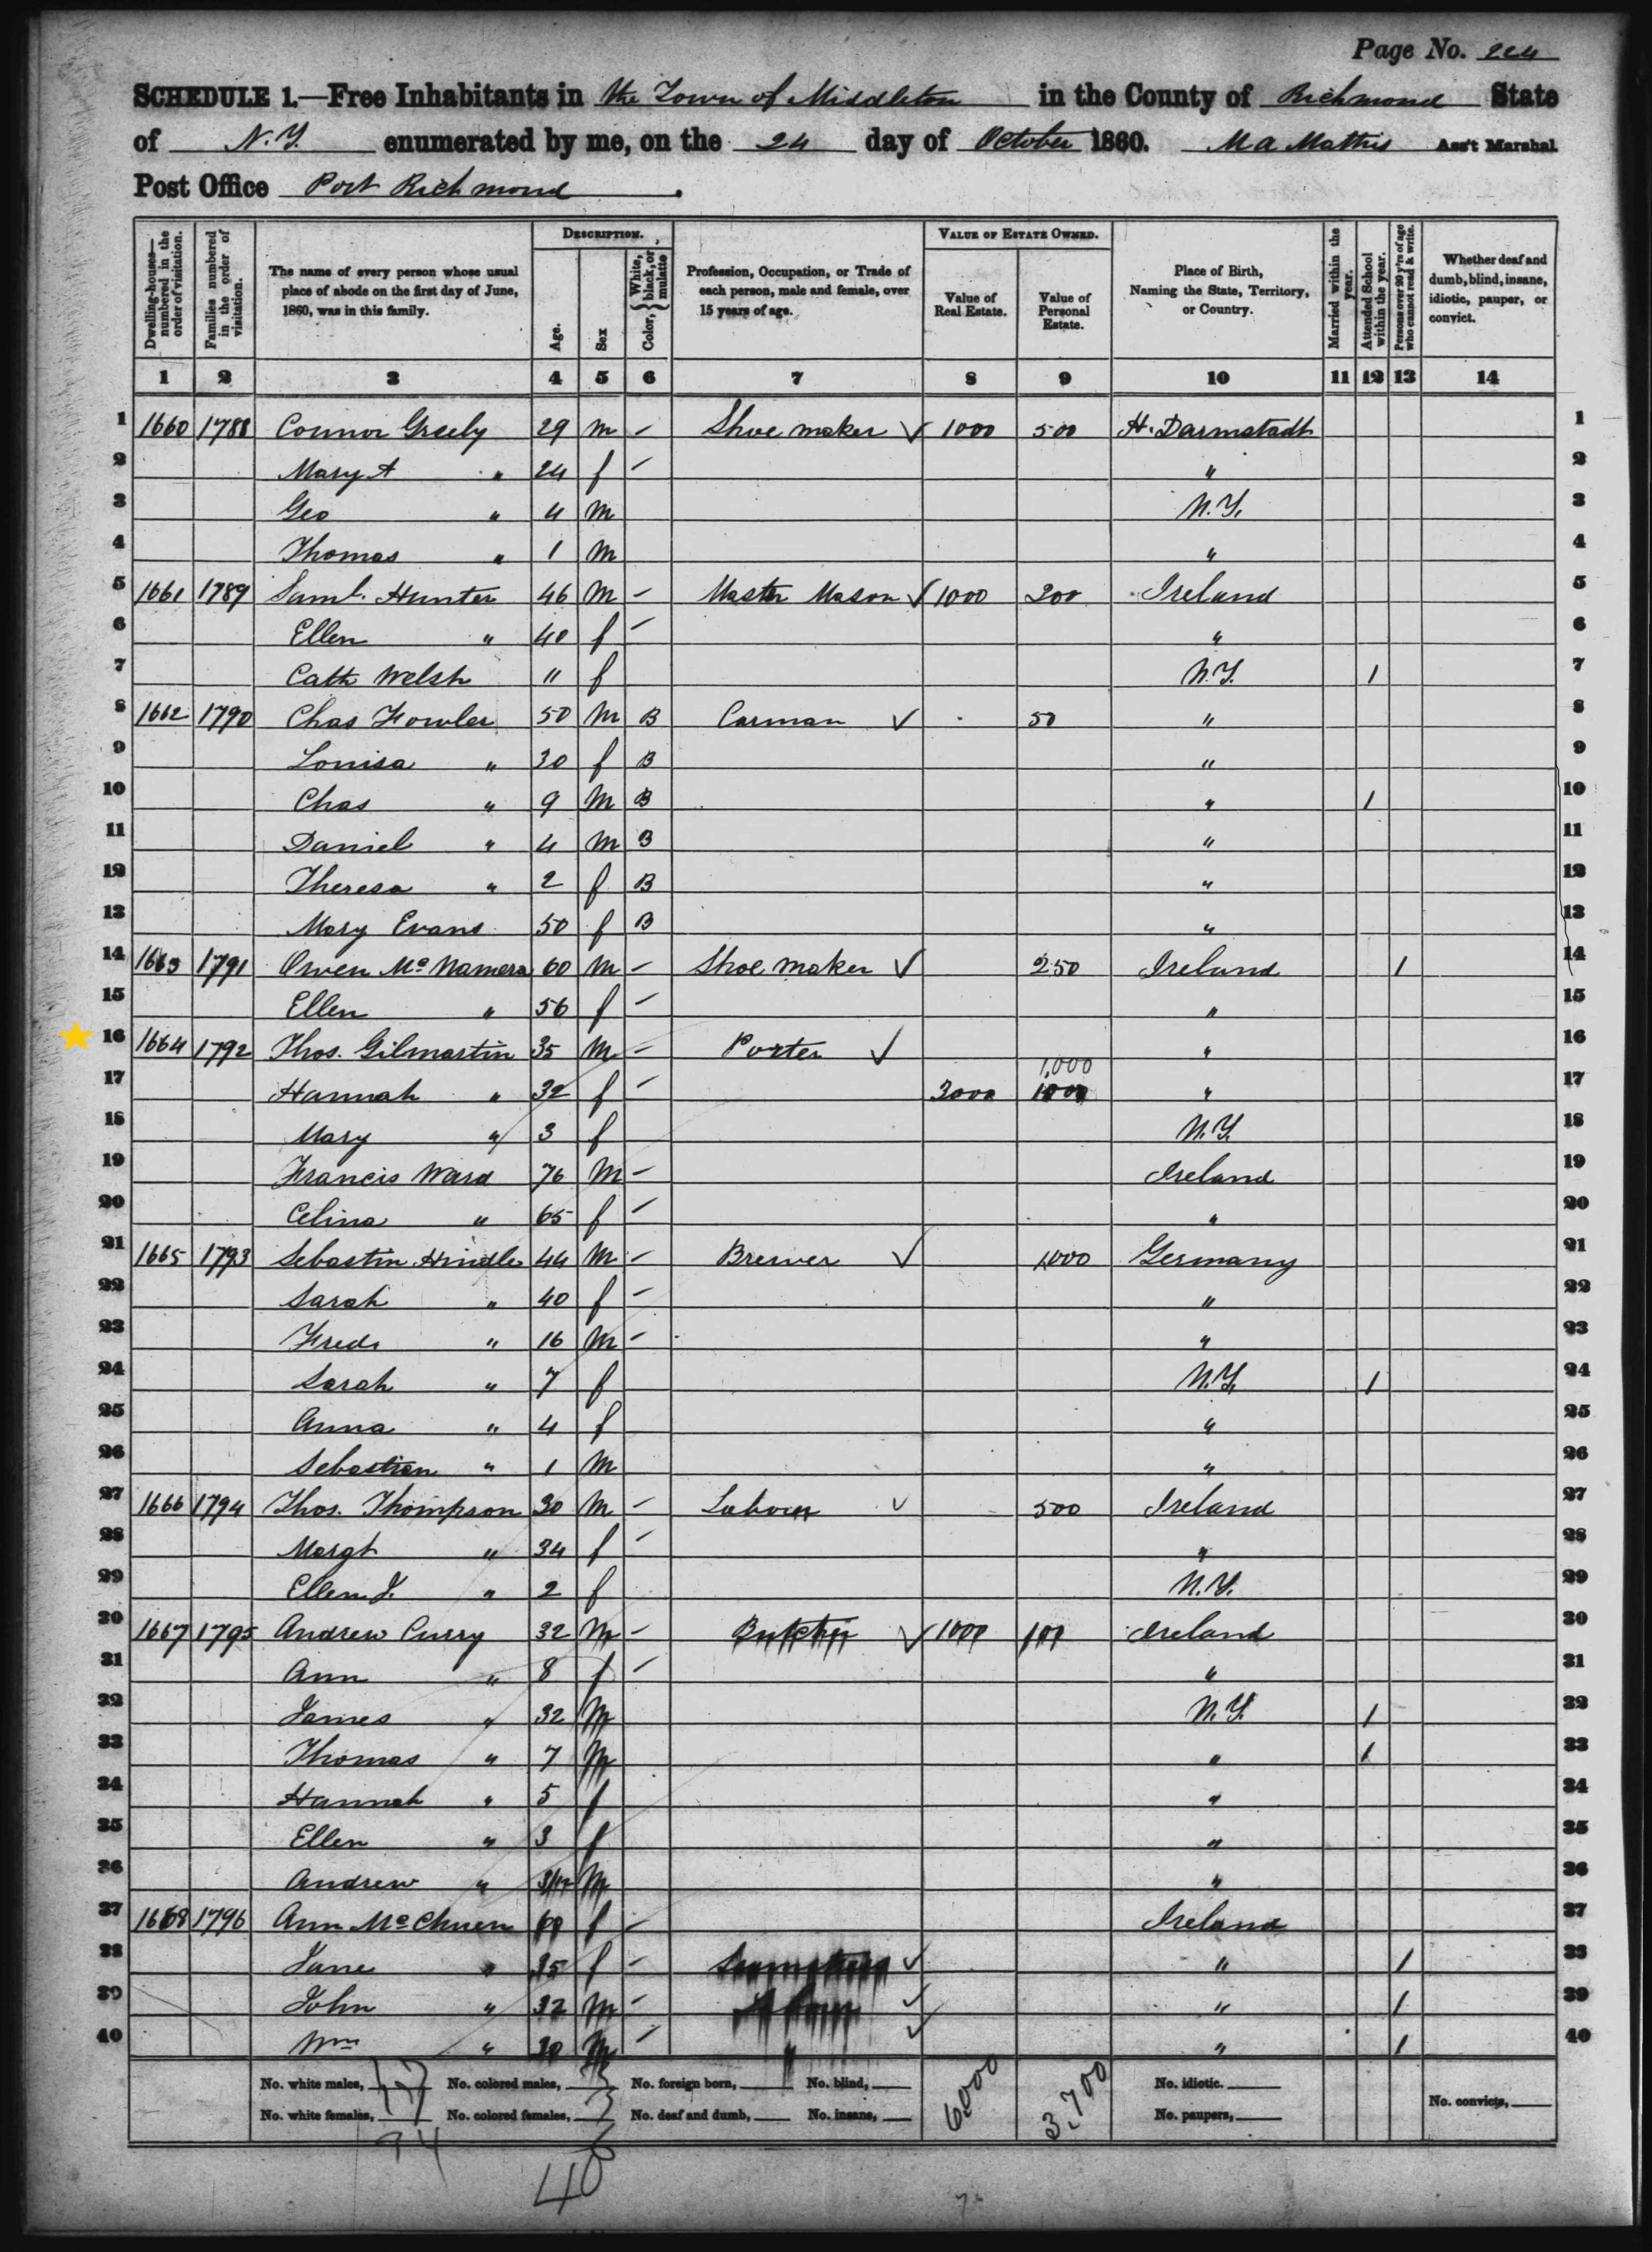 Page No. 224
SCHEDULE 1.—Free Inhabitants in the Town of Middleton in the County of Richmond State
of N.Y. enumerated by me, on the 24 day of October 1860. M A Mathis Ass't Marshal.
Post Office Port Richmond.
Dwelling-houses—numbered in the order of visitation. Families numbered in the order of visitation. The name of every person whose usual place of abode on the first day of June, 1860, was in this family. DESCRIPTION. Age. Sex Color, { White, black, or mulatto Profession, Occupation, or Trade of each person, male and female, over 15 years of age. VALUE OF ESTATE OWNED. Value of Real Estate. Value of Personal Estate. Place of Birth, Naming the State, Territory, or Country. Married within the year. Attended School within the year. Persons over 20 y'rs of age who cannot read & write. Whether deaf and dumb, blind, insane, idiotic, pauper, or convict.
1 2 3 4 5 6 7 8 9 10 11 12 13 14
1 1660 1788 Connor Greely 29 m - Shoe maker ✓ 1000 500 H. Darmstadt 1
2 Mary A " 24 f - " 2
3 Geo " 4 m N.Y. 3
4 Thomas " 1 m " 4
5 1661 1789 Saml. Hunter 46 m - Master Mason ✓ 1000 200 Ireland 5
6 Ellen " 40 f - " 6
7 Cath Welsh 11 f N.Y. 1 7
8 1662 1790 Chas Fowler 50 m B Carman ✓ 50 " 8
9 Louisa " 30 f B " 9
10 Chas " 9 m B " 1 10
11 Daniel " 4 m B " 11
12 Theresa " 2 f B " 12
13 Mary Evans 50 f B " 13
14 1663 1791 Owen McNamera 60 m - Shoe maker ✓ 250 Ireland 1 14
15 Ellen " 56 f - " 15
16 1664 1792 Thos. Gilmartin 35 m - Porter ✓ " 16
1,000
17 Hannah " 32 f - 3000 1000 " 17
18 Mary " 3 f N.Y. 18
19 Francis Ward 76 m - Ireland 19
20 Celina " 65 f - " 20
21 1665 1793 Sebastin Hindle 44 m - Brewer ✓ 1,000 Germany 21
22 Sarah " 40 f - " 22
23 Fredk " 16 m - " 23
24 Sarah " 7 f N.Y. 1 24
25 Anna " 4 f " 25
26 Sebastian " 1 m " 26
27 1666 1794 Thos. Thompson 30 m - Laborer ✓ 500 Ireland 27
28 Margt " 34 f - " 28
29 Ellen J. " 2 f N.Y. 29
30 1667 1795 Andrew Curry 32 m - Butcher ✓ 1000 100 Ireland 30
31 Ann " 8 f - " 31
32 James " 32 m N.Y. 1 32
33 Thomas " 7 m " 1 33
34 Hannah " 5 f " 34
35 Ellen " 3 f " 35
36 Andrew " 3/12 m " 36
37 1668 1796 Ann McChuen 60 f - Ireland 37
38 Jane " 35 f - ✓ " 1 38
39 John " 32 m - ✓ " 1 39
40 Wm " 30 m - ✓ " 1 40
No. white males, 17 No. colored males, 3 No. foreign born, No. blind, 6,000 3,700 No. idiotic.
No. white females, 17 No. colored females, 3 No. deaf and dumb, No. insane, No. paupers, No. convicts,
34
40